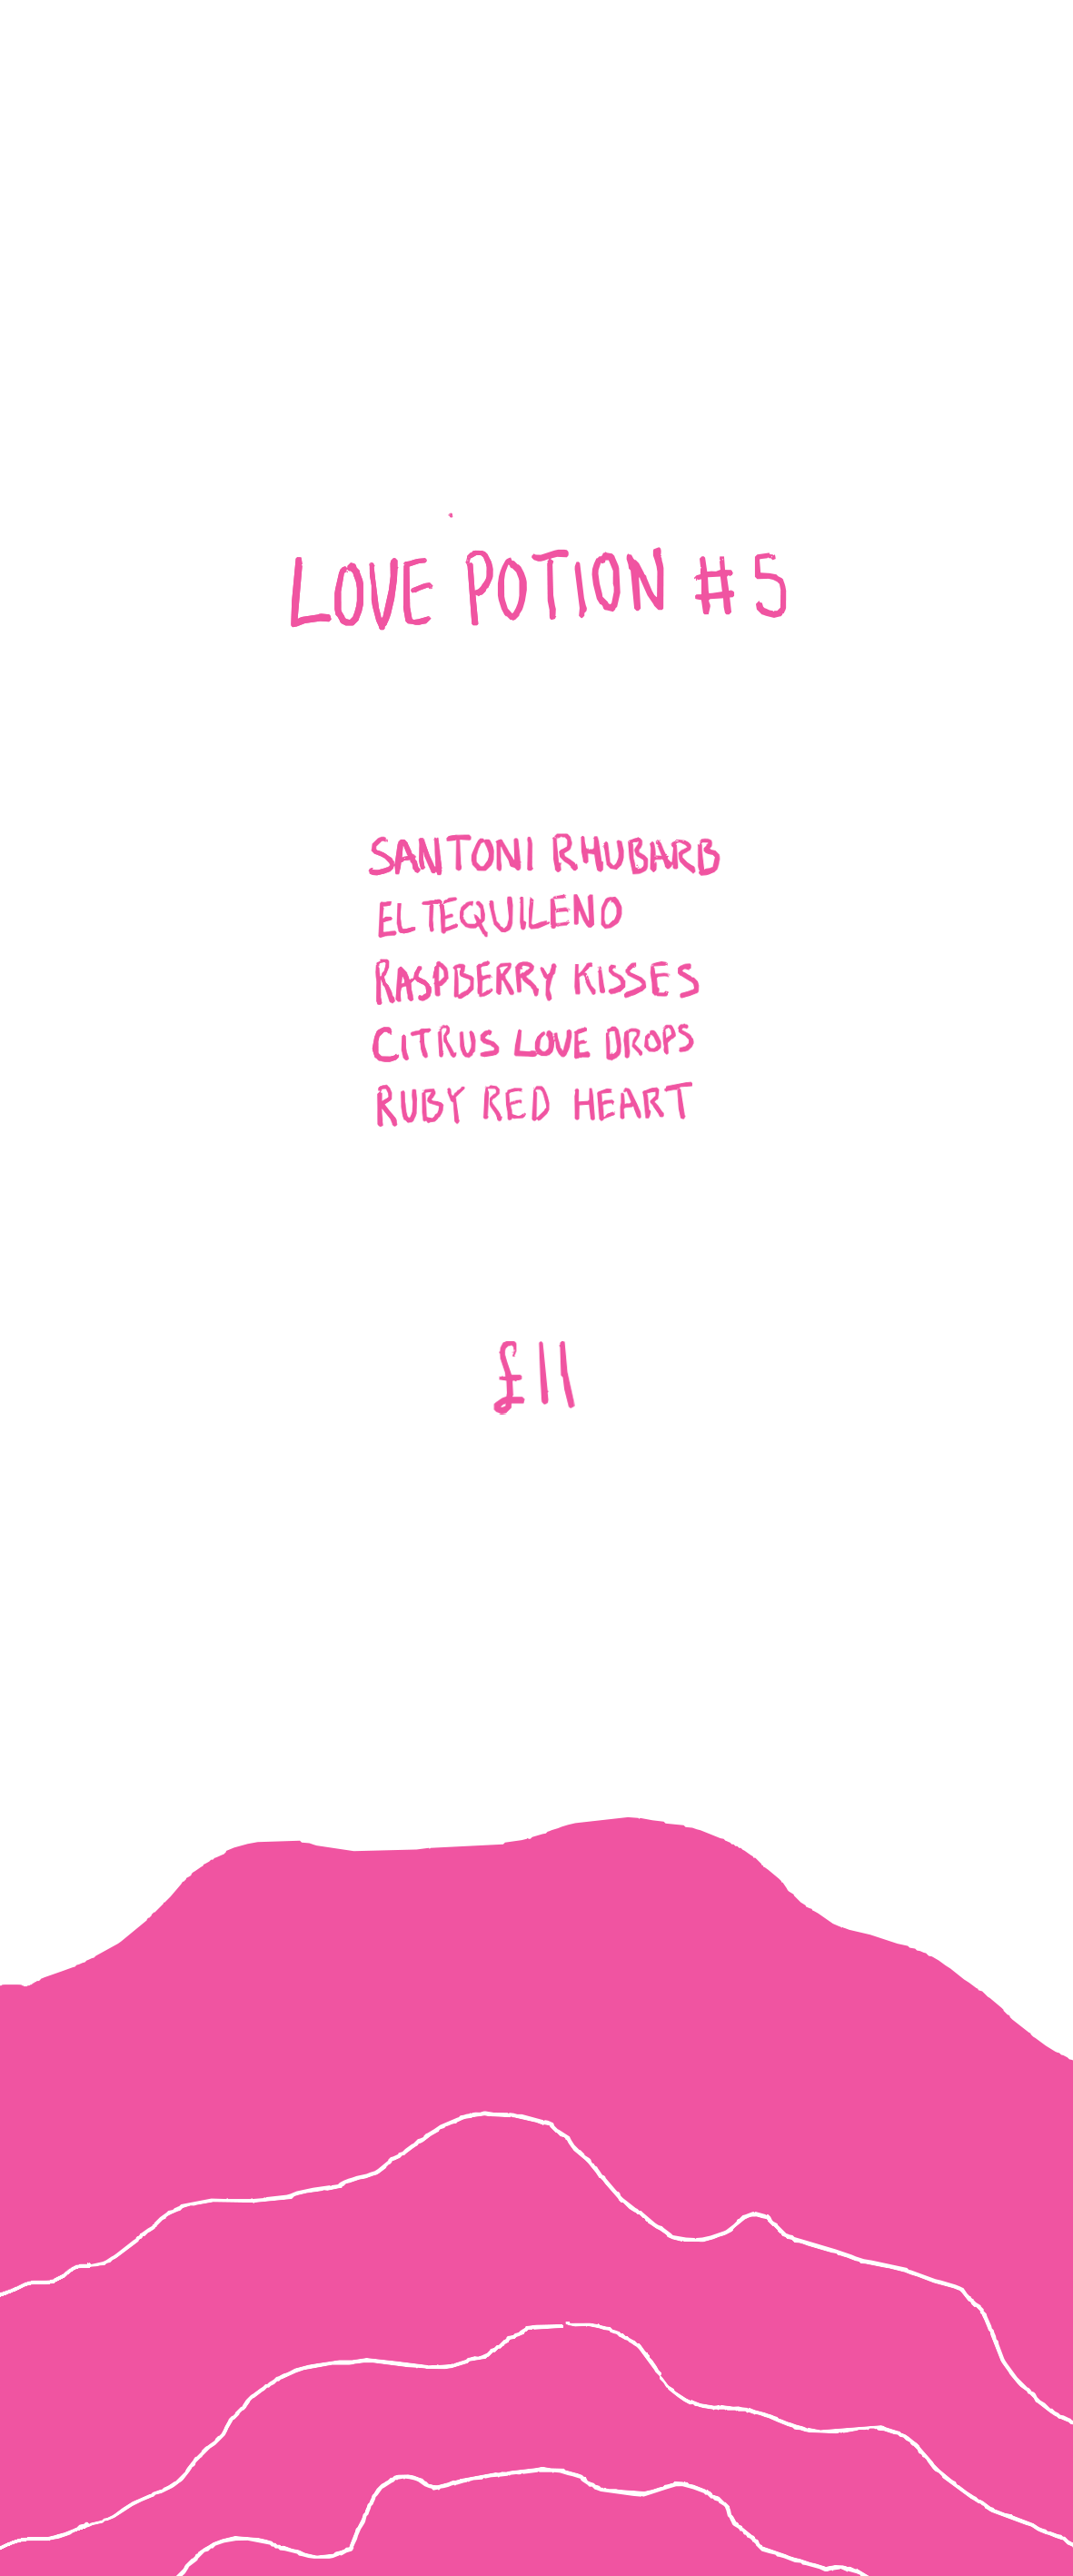 LOVE POTION #5
SANTONI RHUBARB
EL TEQUILENO
RASPBERRY KISSES
CITRUS LOVE DROPS
RUBY RED HEART
£11